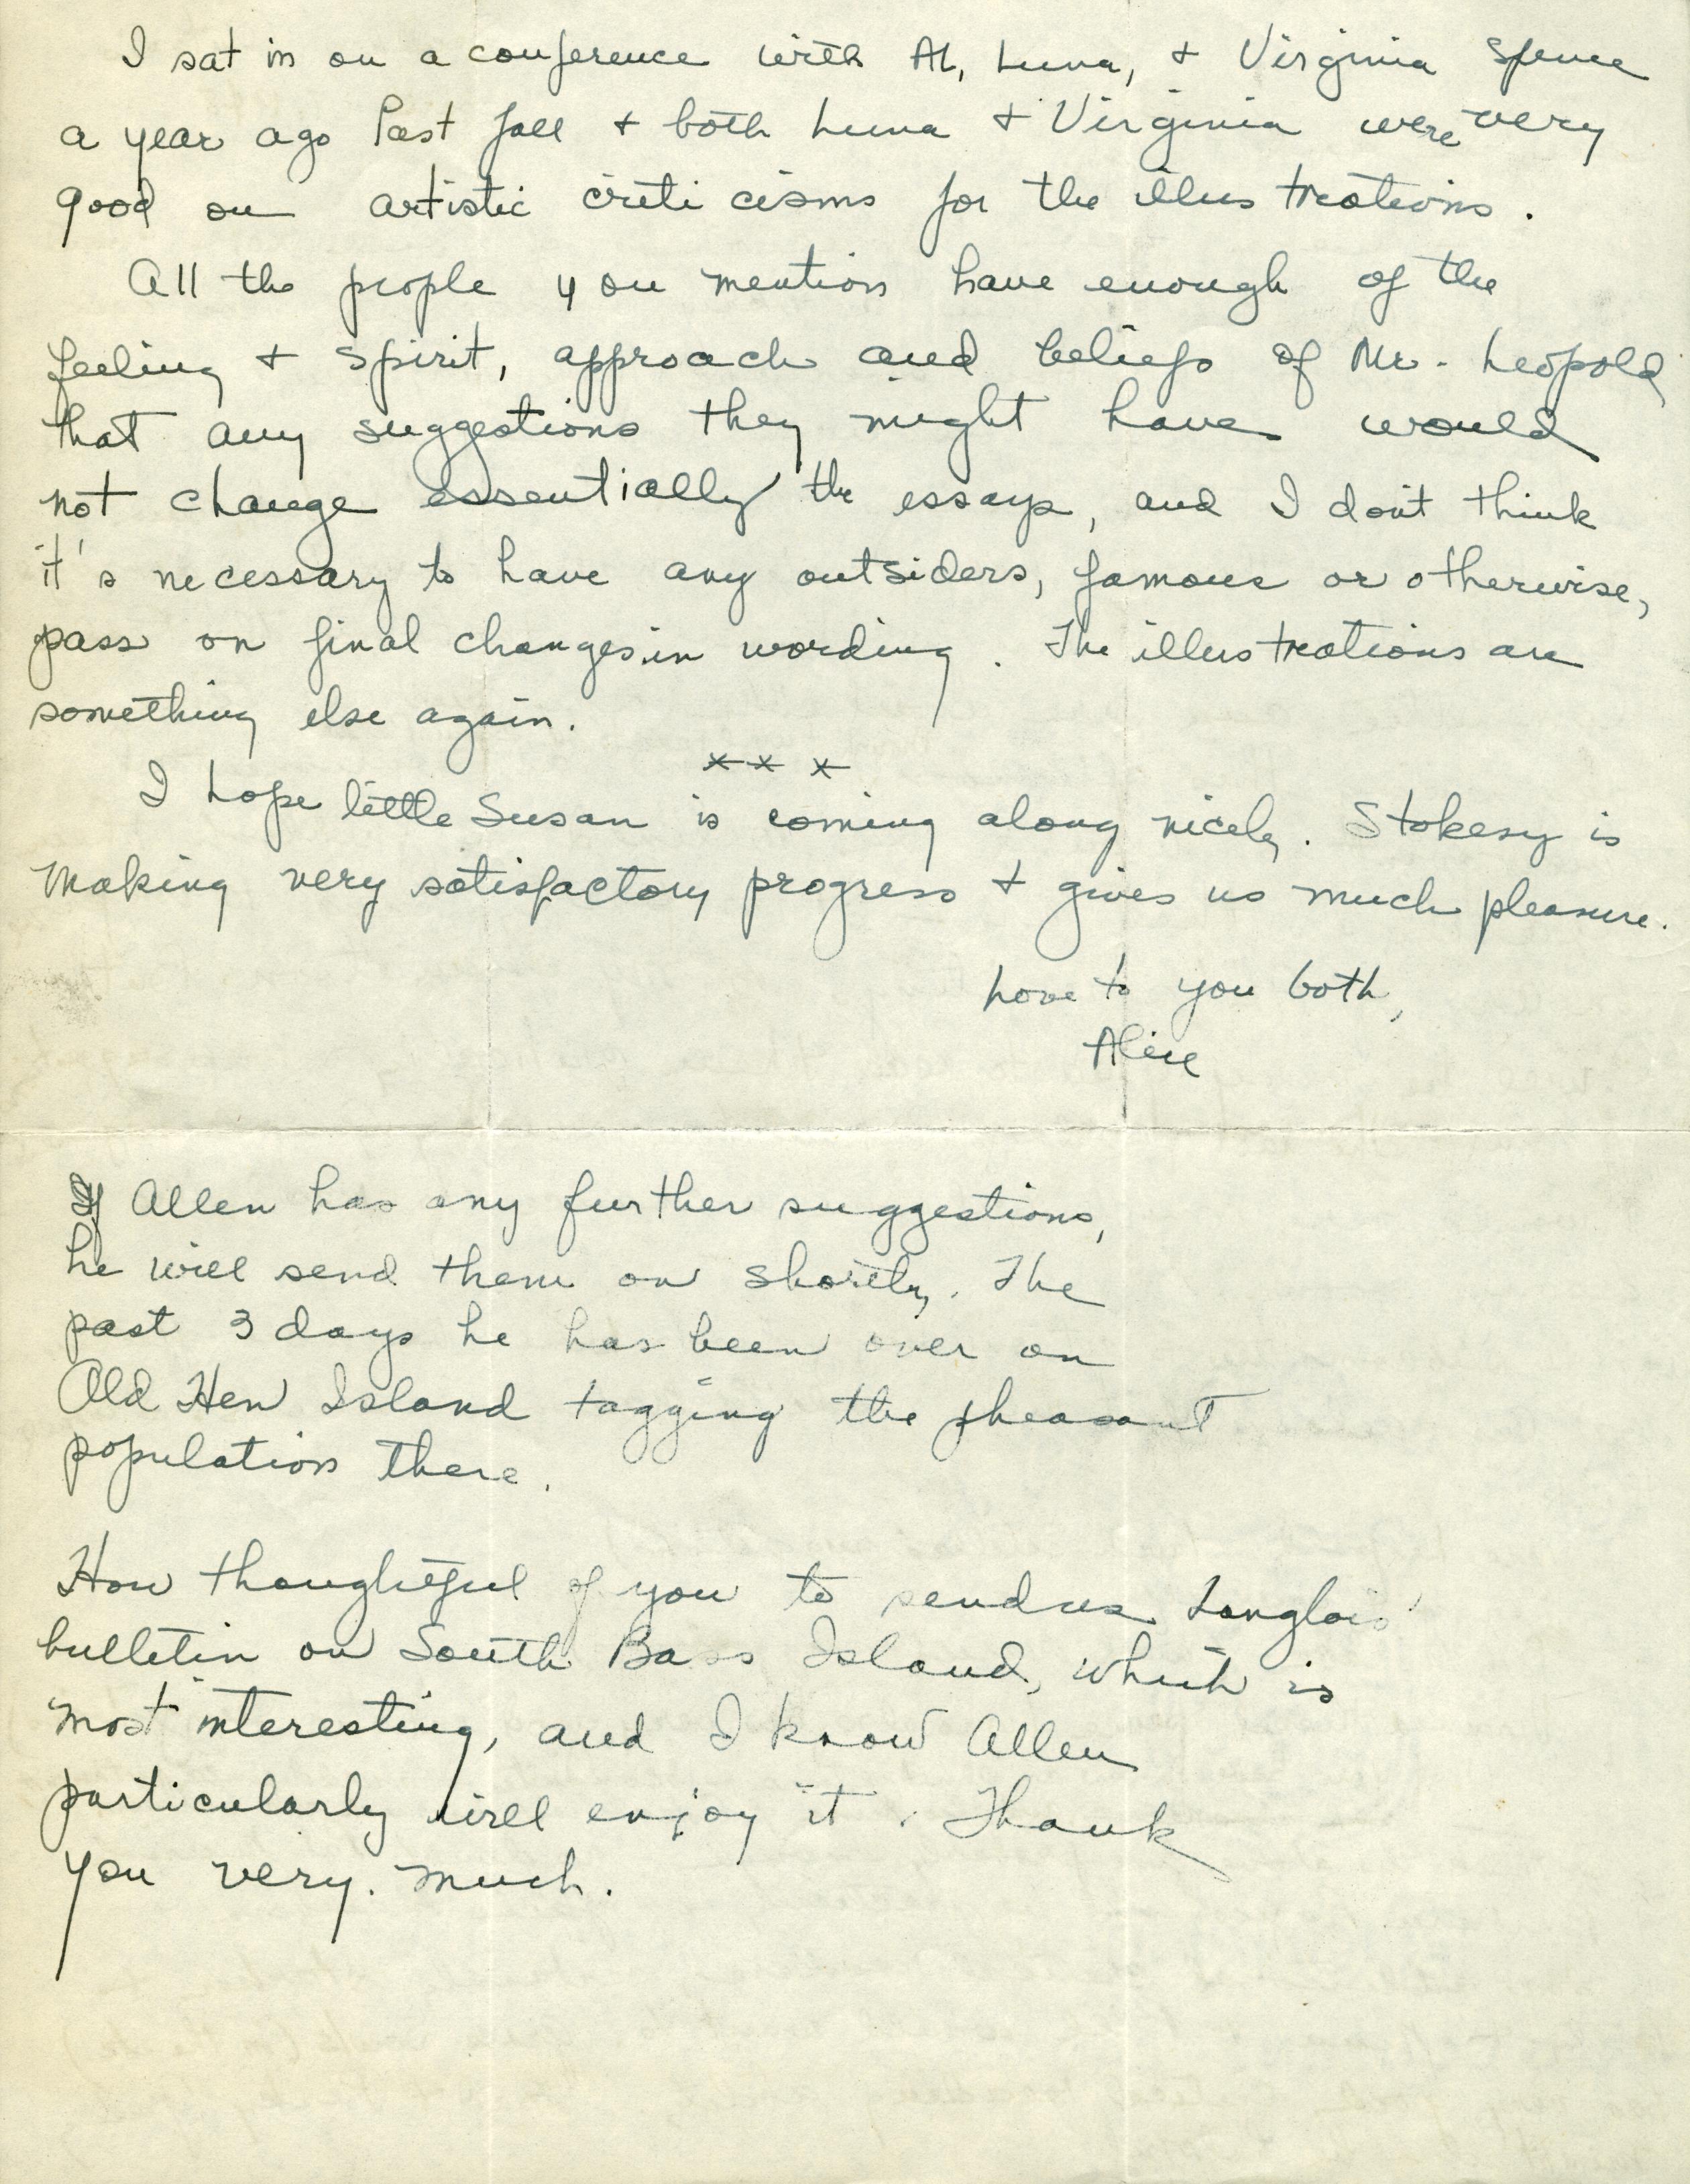 I sat in on a conference with Al, Luna, + Virginia Spence
a year ago last fall + both Luna + Virginia were very
good on artistic criticisms for the illustrations.
All the people you mention have enough of the
feeling + spirit, approach and beliefs of Mr. Leopold
that any suggestions they might have would
not change essentially the essays, and I don't think
it's necessary to have any outsiders, famous or otherwise,
pass on final changes in wording. The illustrations are
something else again.
x x x
I hope little Susan is coming along nicely. Stokesy is
making very satisfactory progress + gives us much pleasure.
Love to you both,
Alice
If Allen has any further suggestions,
he will send them on shortly. The
past 3 days he has been over on
Old Hen Island tagging the pheasant
population there.
How thoughtful of you to send us Langlois'
bulletin on South Bass Island, which is
most interesting, and I know Allen
particularly will enjoy it. Thank
you very much.